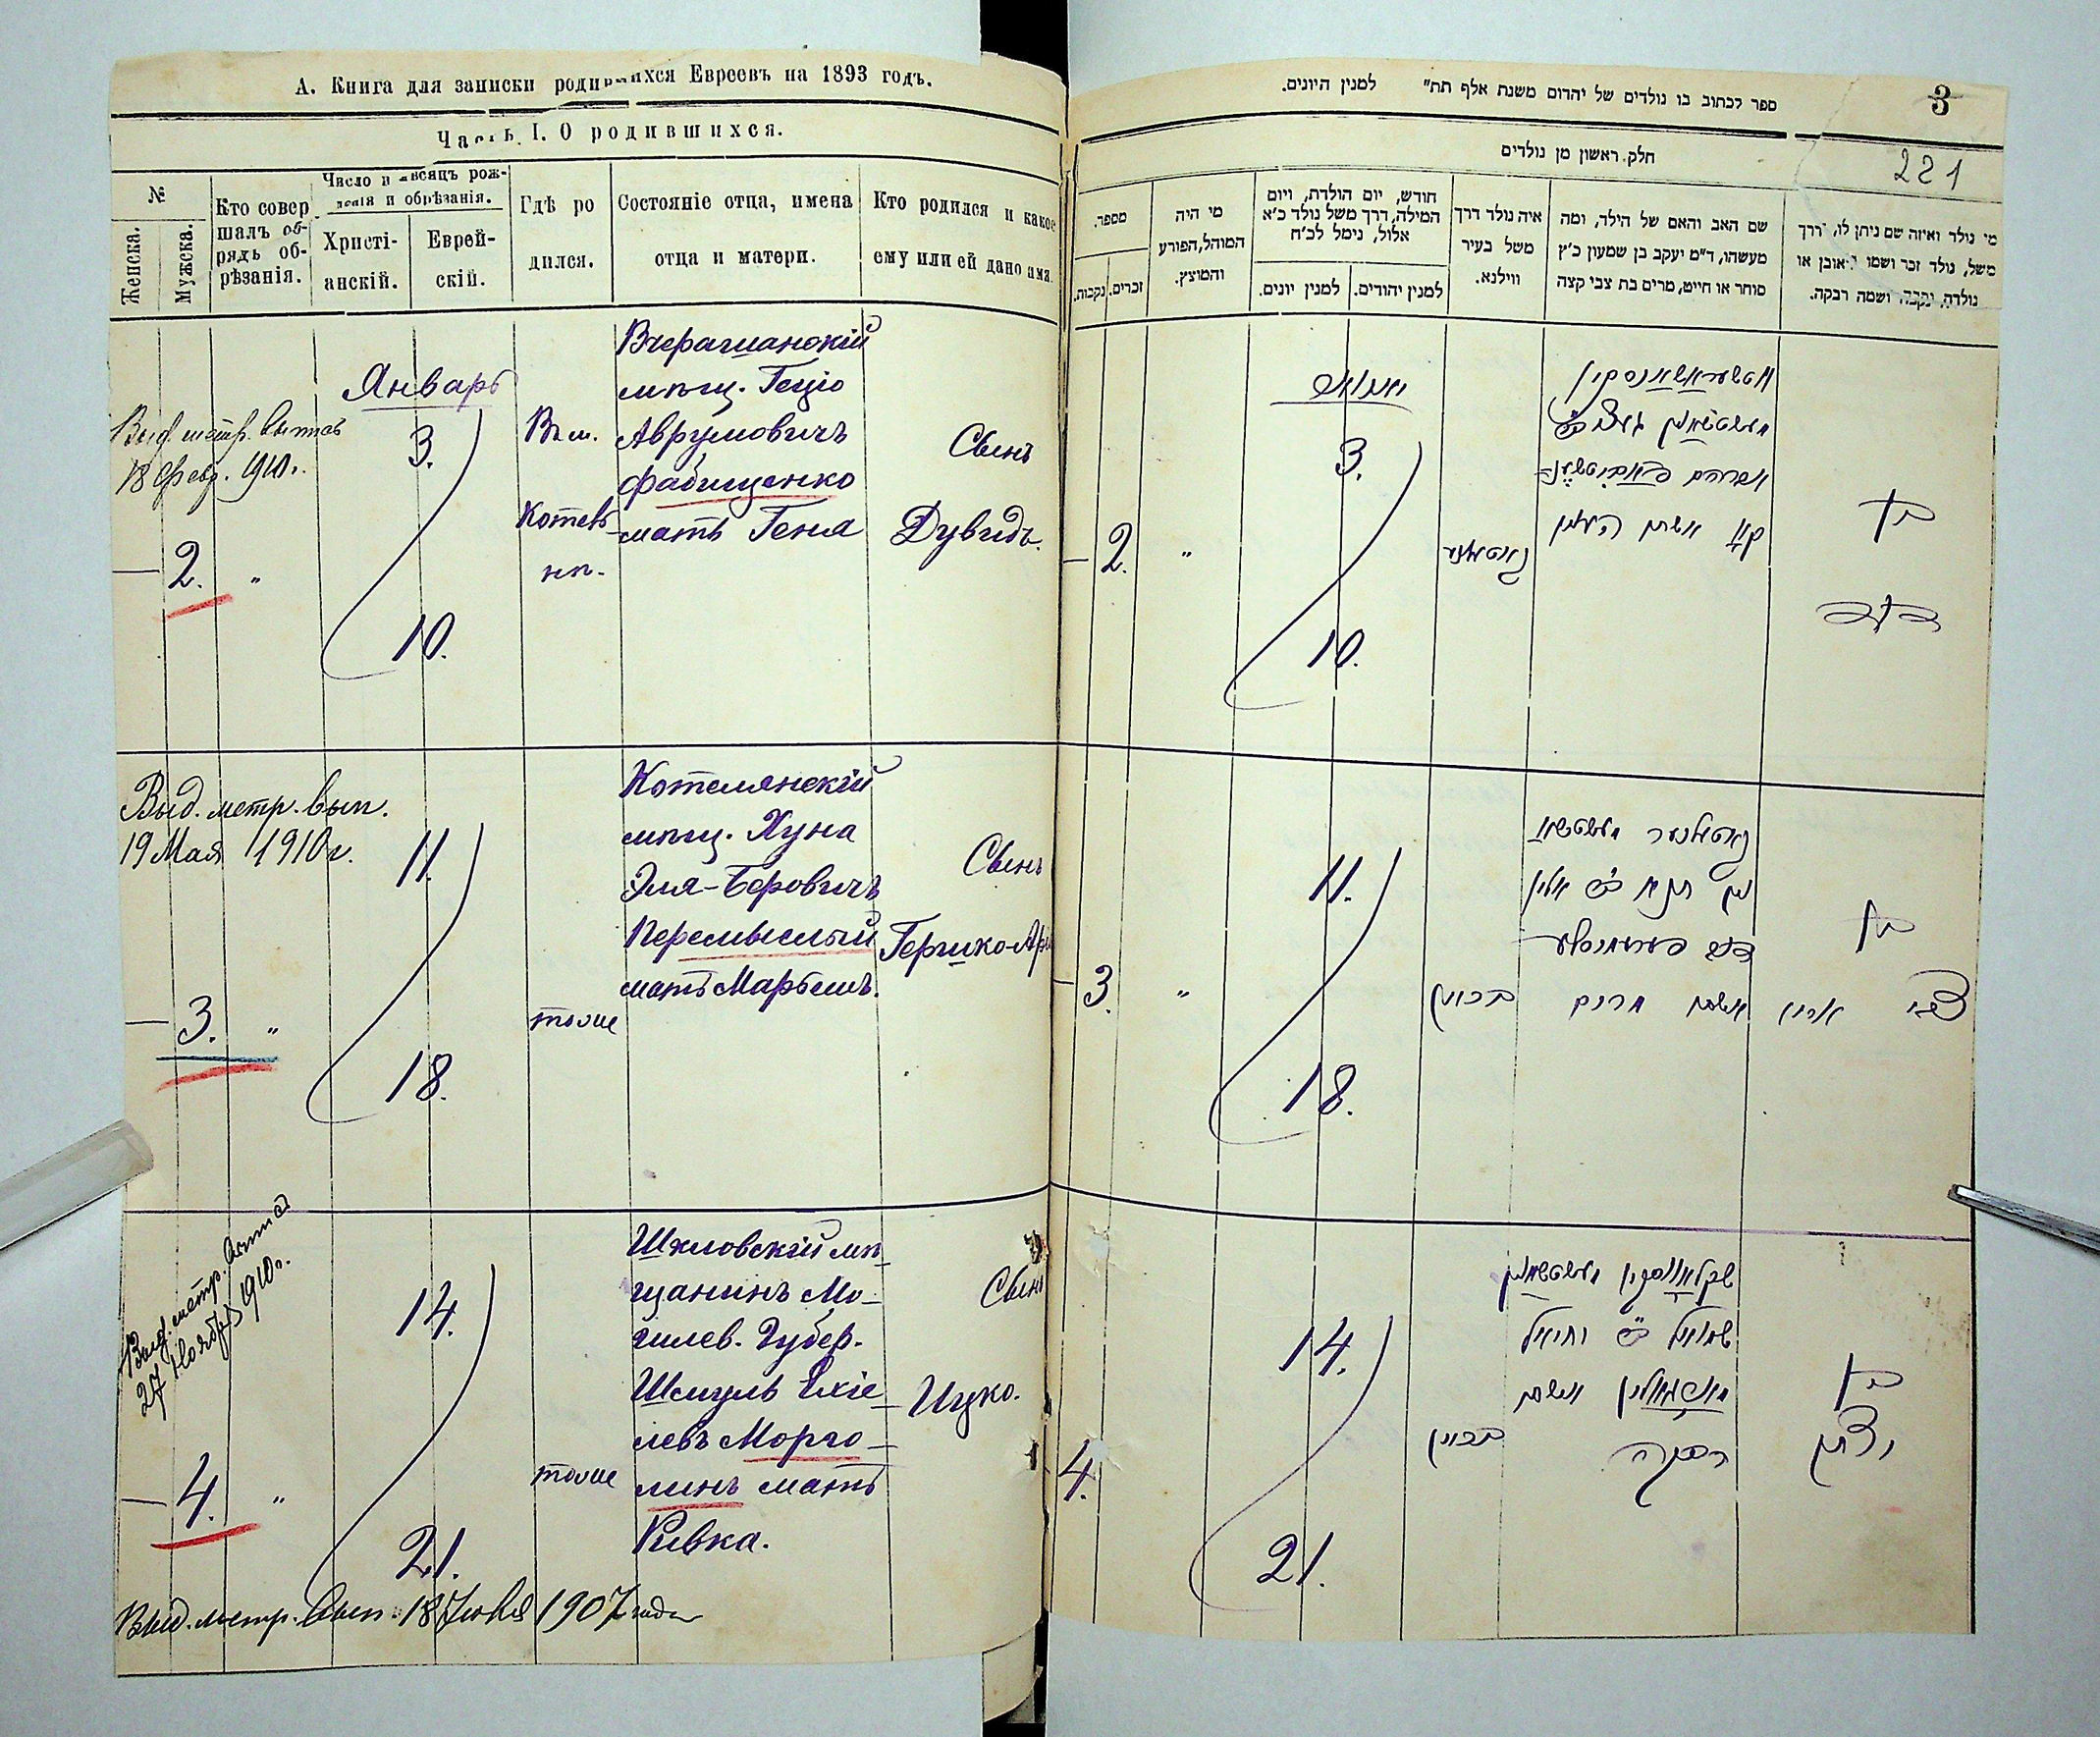 А. Книга для записки родившихся Евреевъ на 1893 годъ.
Часть I. О родившихся.
№
Женска.
Мужска.
Кто совер
шалъ об-
рядъ об-
рѣзанія.
Число и мѣсяцъ рож-
денія и обрѣзанія.
Христі-
анскій.
Еврей-
скій.
Гдѣ ро
дился.
Состояніе отца, имена
отца и матери.
Кто родился и какое
ему или ей дано имя.
Январь
Выд. метр. выпись
18 февр. 1910 г.
— 2. „
3.
10.
Въ м.
Котель-
нѣ.
Вчерашанскій
мѣщ. Гецко
Аврумовичъ
Фабищенко
мать Геня
Сынъ
Дувидъ.
Выд. метр. вып.
19 Мая 1910 г.
— 3. „
11.
18.
тоже
Котелянскій
мѣщ. Хуна
Эля-Беровичъ
Перемыслый
мать Марьемъ.
Сынъ
Гершко-Арн
Выд. метр. выпись
27 Ноября 1910 г.
— 4. „
14.
21.
тоже
Шкловскій мѣ-
щанинъ Мо-
гилев. Губер.
Шмуль Ехіе-
левъ Морго-
линъ мать
Ривка.
Сынъ
Ицко.
Выд. метр. вып. 18 Июля 1907 года
ספר לכתוב בו נולדים של יהדום משנת אלף תת״ למנין היונים.
3
חלק ראשון מן נולדים
221
מי נולד ואיזה שם ניתן לו, דרך
משל, נולד זכר ושמו ראובן או
נולדה נקבה ושמה רבקה.
שם האב והאם של הילד, ומה
מעשהו, ד״מ יעקב בן שמעון כ״ץ
סוחר או חייט, מרים בת צבי קצה
איה נולד דרך
משל בעיר
ווילנא.
חודש, יום הולדת, ויום
המילה, דרך משל נולד כ׳א
אלול, נימל לכ׳ח
למנין יהודים.
למנין יונים.
מי היה
המוהל, הפורע
והמוצץ.
מספר.
זכרים.
נקבות.
יאנואר
3.
10.
— 2. „
בן
דוד
11.
18.
— 3. „
בן
צבי ארון
אשתו מרים
14.
21.
4.
שמואל ב״ר יחיאל
מארגאלין אשתו
רבקה
בן
יצחק